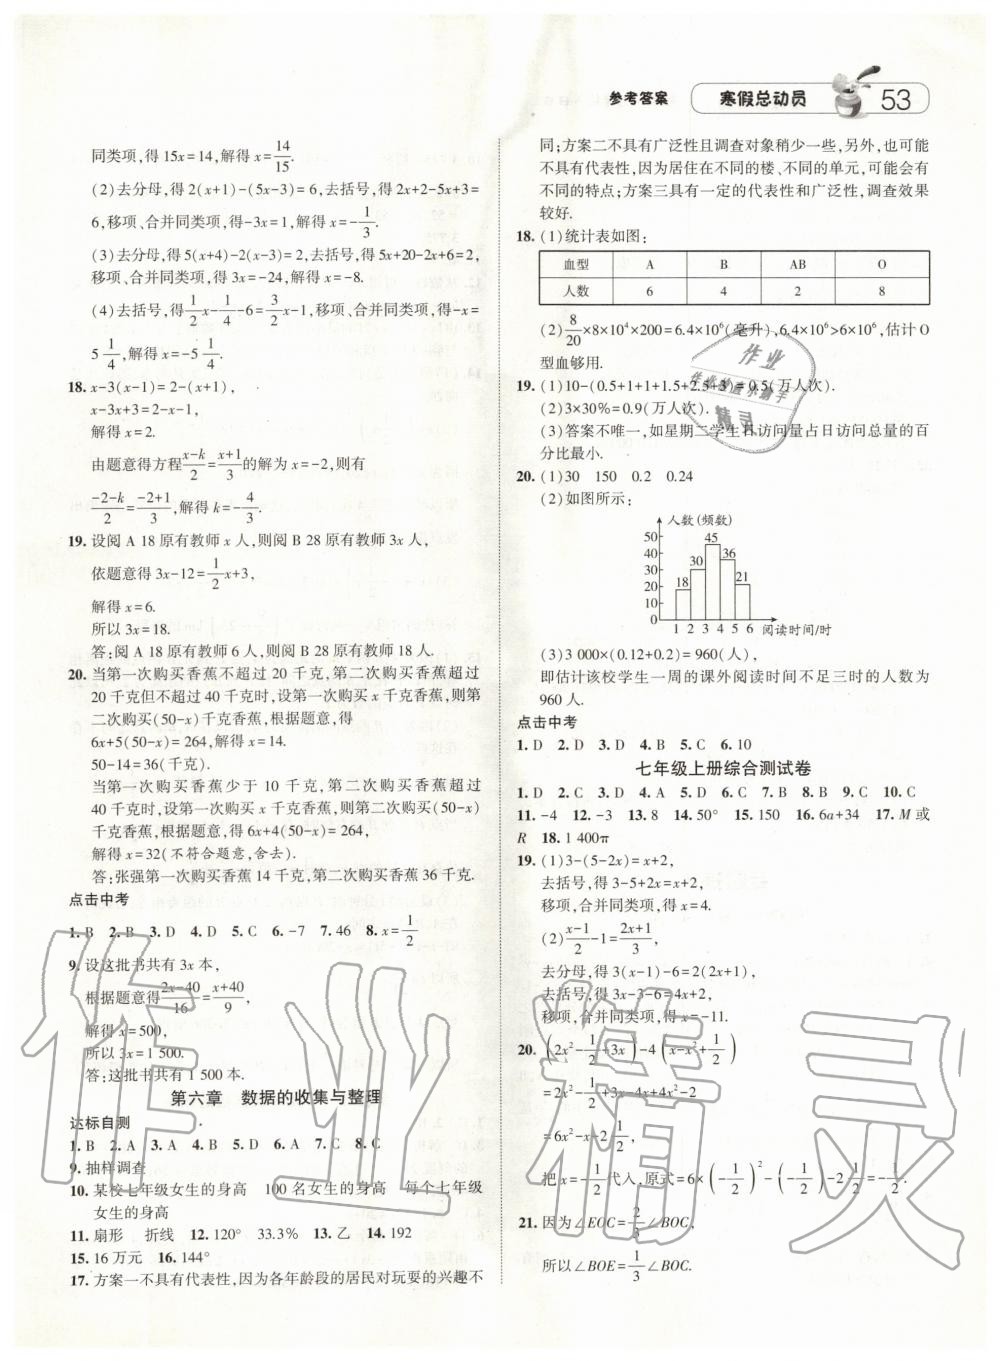 参考答案 寒假总动员 53
同类项,得 15x=14,解得 x=14/15.
(2)去分母,得 2(x+1)-(5x-3)=6,去括号,得 2x+2-5x+3=
6,移项、合并同类项,得-3x=1,解得 x=-1/3.
(3)去分母,得 5(x+4)-2(x-3)=2,去括号,得 5x+20-2x+6=2,
移项、合并同类项,得 3x=-24,解得 x=-8.
(4)去括号,得 1/2x-1/4-6=3/2x-1,移项、合并同类项,得-x=
5 1/4,解得 x=-5 1/4.
18. x-3(x-1)=2-(x+1),
x-3x+3=2-x-1,
解得 x=2.
由题意得方程 x-k/2=x+1/3 的解为 x=-2,则有
-2-k/2=-2+1/3,解得 k=-4/3.
19. 设阅 A 18 原有教师 x 人,则阅 B 28 原有教师 3x 人,
依题意得 3x-12=1/2x+3,
解得 x=6.
所以 3x=18.
答:阅 A 18 原有教师 6 人,则阅 B 28 原有教师 18 人.
20. 当第一次购买香蕉不超过 20 千克,第二次购买香蕉超过
20 千克但不超过 40 千克时,设第一次购买 x 千克香蕉,则第
二次购买(50-x)千克香蕉,根据题意,得
6x+5(50-x)=264,解得 x=14.
50-14=36(千克).
当第一次购买香蕉少于 10 千克,第二次购买香蕉超过
40 千克时,设第一次购买 x 千克香蕉,则第二次购买(50-x)
千克香蕉,根据题意,得 6x+4(50-x)=264,
解得 x=32(不符合题意,舍去).
答:张强第一次购买香蕉 14 千克,第二次购买香蕉 36 千克.
点击中考
1. B 2. B 3. D 4. D 5. C 6. -7 7. 46 8. x=1/2
9. 设这批书共有 3x 本,
根据题意得 2x-40/16=x+40/9,
解得 x=500,
所以 3x=1 500.
答:这批书共有 1 500 本.
第六章 数据的收集与整理
达标自测
1. B 2. A 3. A 4. B 5. D 6. A 7. C 8. C
9. 抽样调查
10. 某校七年级女生的身高 100 名女生的身高 每个七年级
女生的身高
11. 扇形 折线 12. 120° 33.3% 13. 乙 14. 192
15. 16 万元 16. 144°
17. 方案一不具有代表性,因为各年龄段的居民对玩要的兴趣不
同;方案二不具有广泛性且调查对象稍少一些,另外,可能
不具有代表性,因为居住在不同的楼、不同的单元,可能会有
不同的特点;方案三具有一定的代表性和广泛性,调查效果
较好.
18. (1)统计表如图:
血型 A B AB O
人数 6 4 2 8
(2)8/20×8×10⁴×200=6.4×10⁶(毫升),6.4×10⁶>6×10⁶,估计 O
型血够用.
19. (1)10-(0.5+1+1+1.5+2.5+3)=0.5(万人次).
(2)3×30%=0.9(万人次).
(3)答案不唯一,如星期二学生日访问量占日访问总量的百
分比最小.
20. (1)30 150 0.2 0.24
(2)如图所示:
人数(频数)
50
40
30
20
10
18 30 45 36 21
1 2 3 4 5 6 阅读时间/时
(3)3 000×(0.12+0.2)=960(人),
即估计该校学生一周的课外阅读时间不足三时的人数为
960 人.
点击中考
1. D 2. D 3. D 4. B 5. C 6. 10
七年级上册综合测试卷
1. D 2. C 3. D 4. A 5. D 6. A 7. C 8. B 9. C 10. C
11. -4 12. -3 13. 8 14. 50° 15. 150 16. 6a+34 17. M 或
R 18. 1 400π
19. (1)3-(5-2x)=x+2,
去括号,得 3-5+2x=x+2,
移项,合并同类项,得 x=4.
(2)x-1/2-1=2x+1/3,
去分母,得 3(x-1)-6=2(2x+1),
去括号,得 3x-3-6=4x+2,
移项,合并同类项,得 x=-11.
20. (2x²-1/2+3x)-4(x-x²+1/2)
=2x²-1/2+3x-4x+4x²-2
=6x²-x-2 1/2,
把 x=-1/2 代入,原式=6×(-1/2)²-(-1/2)-2 1/2=-1/2.
21. 因为∠EOC=2/3∠BOC,
所以∠BOE=1/3∠BOC.
作业精灵
作业
精灵